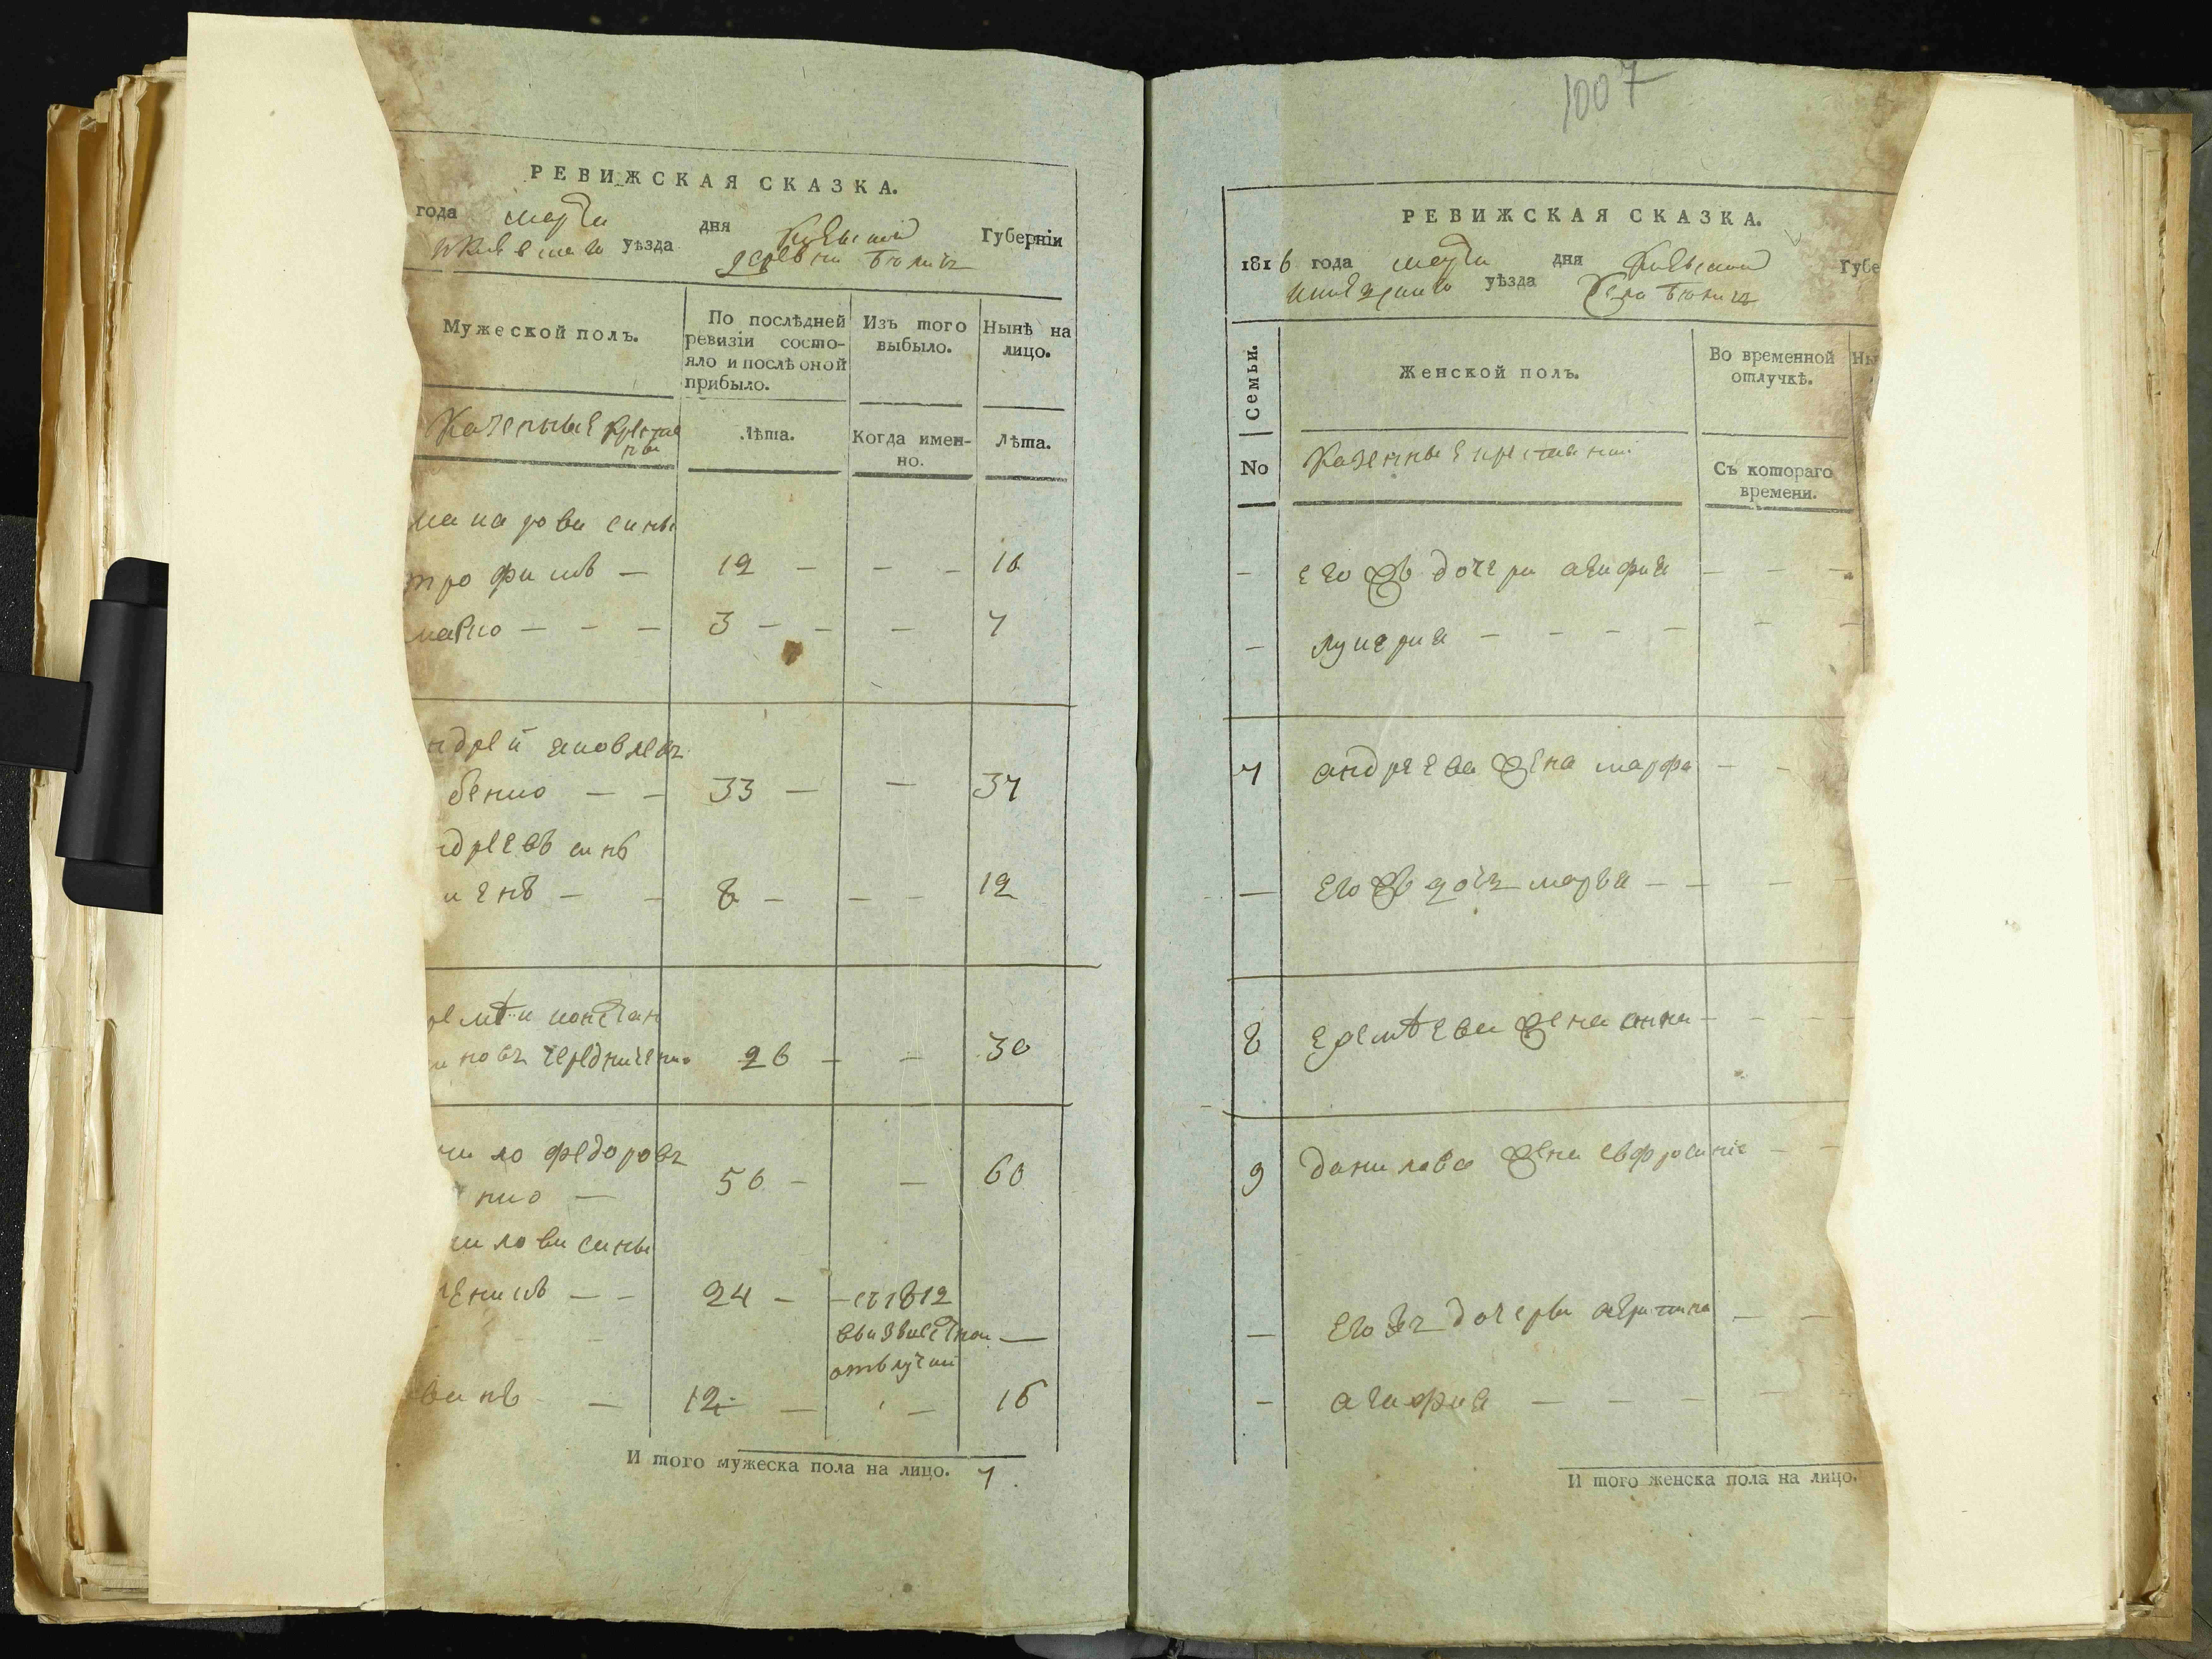 РЕВИЖСКАЯ СКАЗКА.
года марта дня Киевской Губерніи
уѣзда деревни Бѣличъ
Мужеской полъ.
По послѣдней ревизіи состо-
яло и послѣ оной
прибыло.
Изъ того
выбыло.
Нынѣ на
лицо.
Казенные крестья
не
Лѣта.
Когда имен-
но.
Лѣта.
сины
трофимъ — 12 — — — 16
марко — — — 3 — — — 7
ндрей яковлевъ
бенко — — 33 — — 37
ндреевъ синъ
8 — — — 12
ремѣи констан
иновъ чередниченко 26 — — 30
ило федоровъ
нко — 56 — — 60
иловы сины
24 — — съ 1812
—
отлучки
ванъ — 12 — — 16
И того мужеска пола на лицо. 7
1007
РЕВИЖСКАЯ СКАЗКА.
1816 года марта дня Киевской Губе
уѣзда Села Бѣличъ
Семьи.
Женской полъ.
Во временной
отлучкѣ.
Ны
No
Казенные крестьяне
Съ котораго
времени.
— его жъ дочери агафия — — —
— лукерия — — — — — —
7 андреева жена марфа — —
— его жъ дочь марья — — — —
8 еремѣева жена анна — — —
9 данилова жена евфросиніе — —
— его жъ дочеры — —
— агафия — — — — —
И того женска пола на лицо.